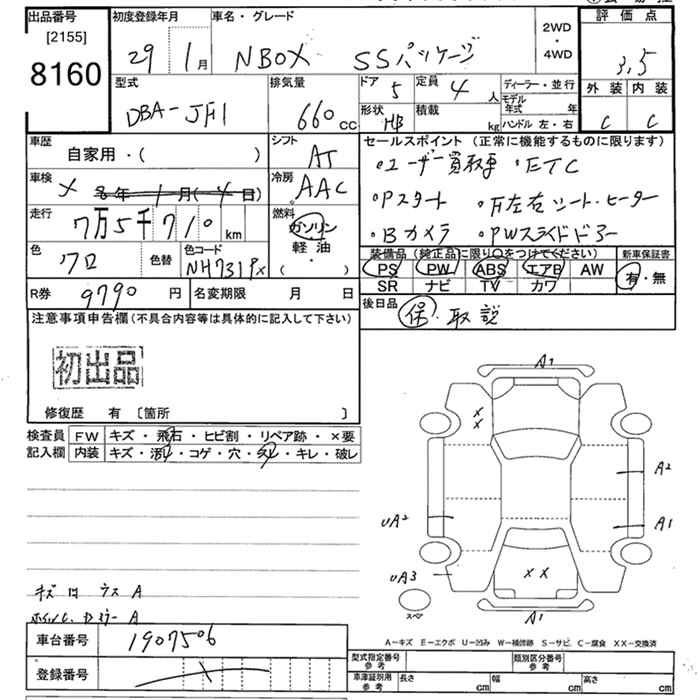 出品番号 初度登録年月 車名・グレード 2WD・4WD 評価点
[2155]
8160
29 1月 NBOX SSパッケージ 3.5
型式 排気量 ドア 5 定員 4人 ディーラー・並行 外装 内装
DBA-JF1 660cc 形状 HB 積載 kg モデル年式 年 C C
ハンドル 左・右
車歴 シフト セールスポイント (正常に機能するものに限ります)
自家用・( ) AT ・ユーザー買取車 ・ETC
車検 × 8年 1月(4日) 冷房 AAC ・Pスタート ・左右シート・ヒーター
走行 7万5千710km 燃料 ・Bカメラ ・PWスライドドアー
ガソリン
軽油
・( )
色 クロ 色替 色コード NH731PX
装備品 (純正品に限り○をつけてください) 新車保証書
PS PW ABS エアB AW 有・無
SR ナビ TV カワ
R券 9790円 名変期限 月 日 後日品
保・取説
注意事項申告欄(不具合内容等は具体的に記入して下さい)
初出品
修復歴 有 〔箇所 〕
検査員 FW キズ・飛石・ヒビ割・リペア跡・×要
記入欄 内装 キズ・汚レ・コゲ・穴・スレ・キレ・破レ
A1
XX
A2
UA2 A1
XX
UA3
スペア
A1
キズ ウス A
A
A-キズ E-エクボ U-凹み W-補修跡 S-サビ C-腐食 XX-交換済
車台番号 1907506
登録番号
型式指定番号 参考 類別区分番号 参考
車庫証明用 参考 長さ cm 幅 cm 高さ cm